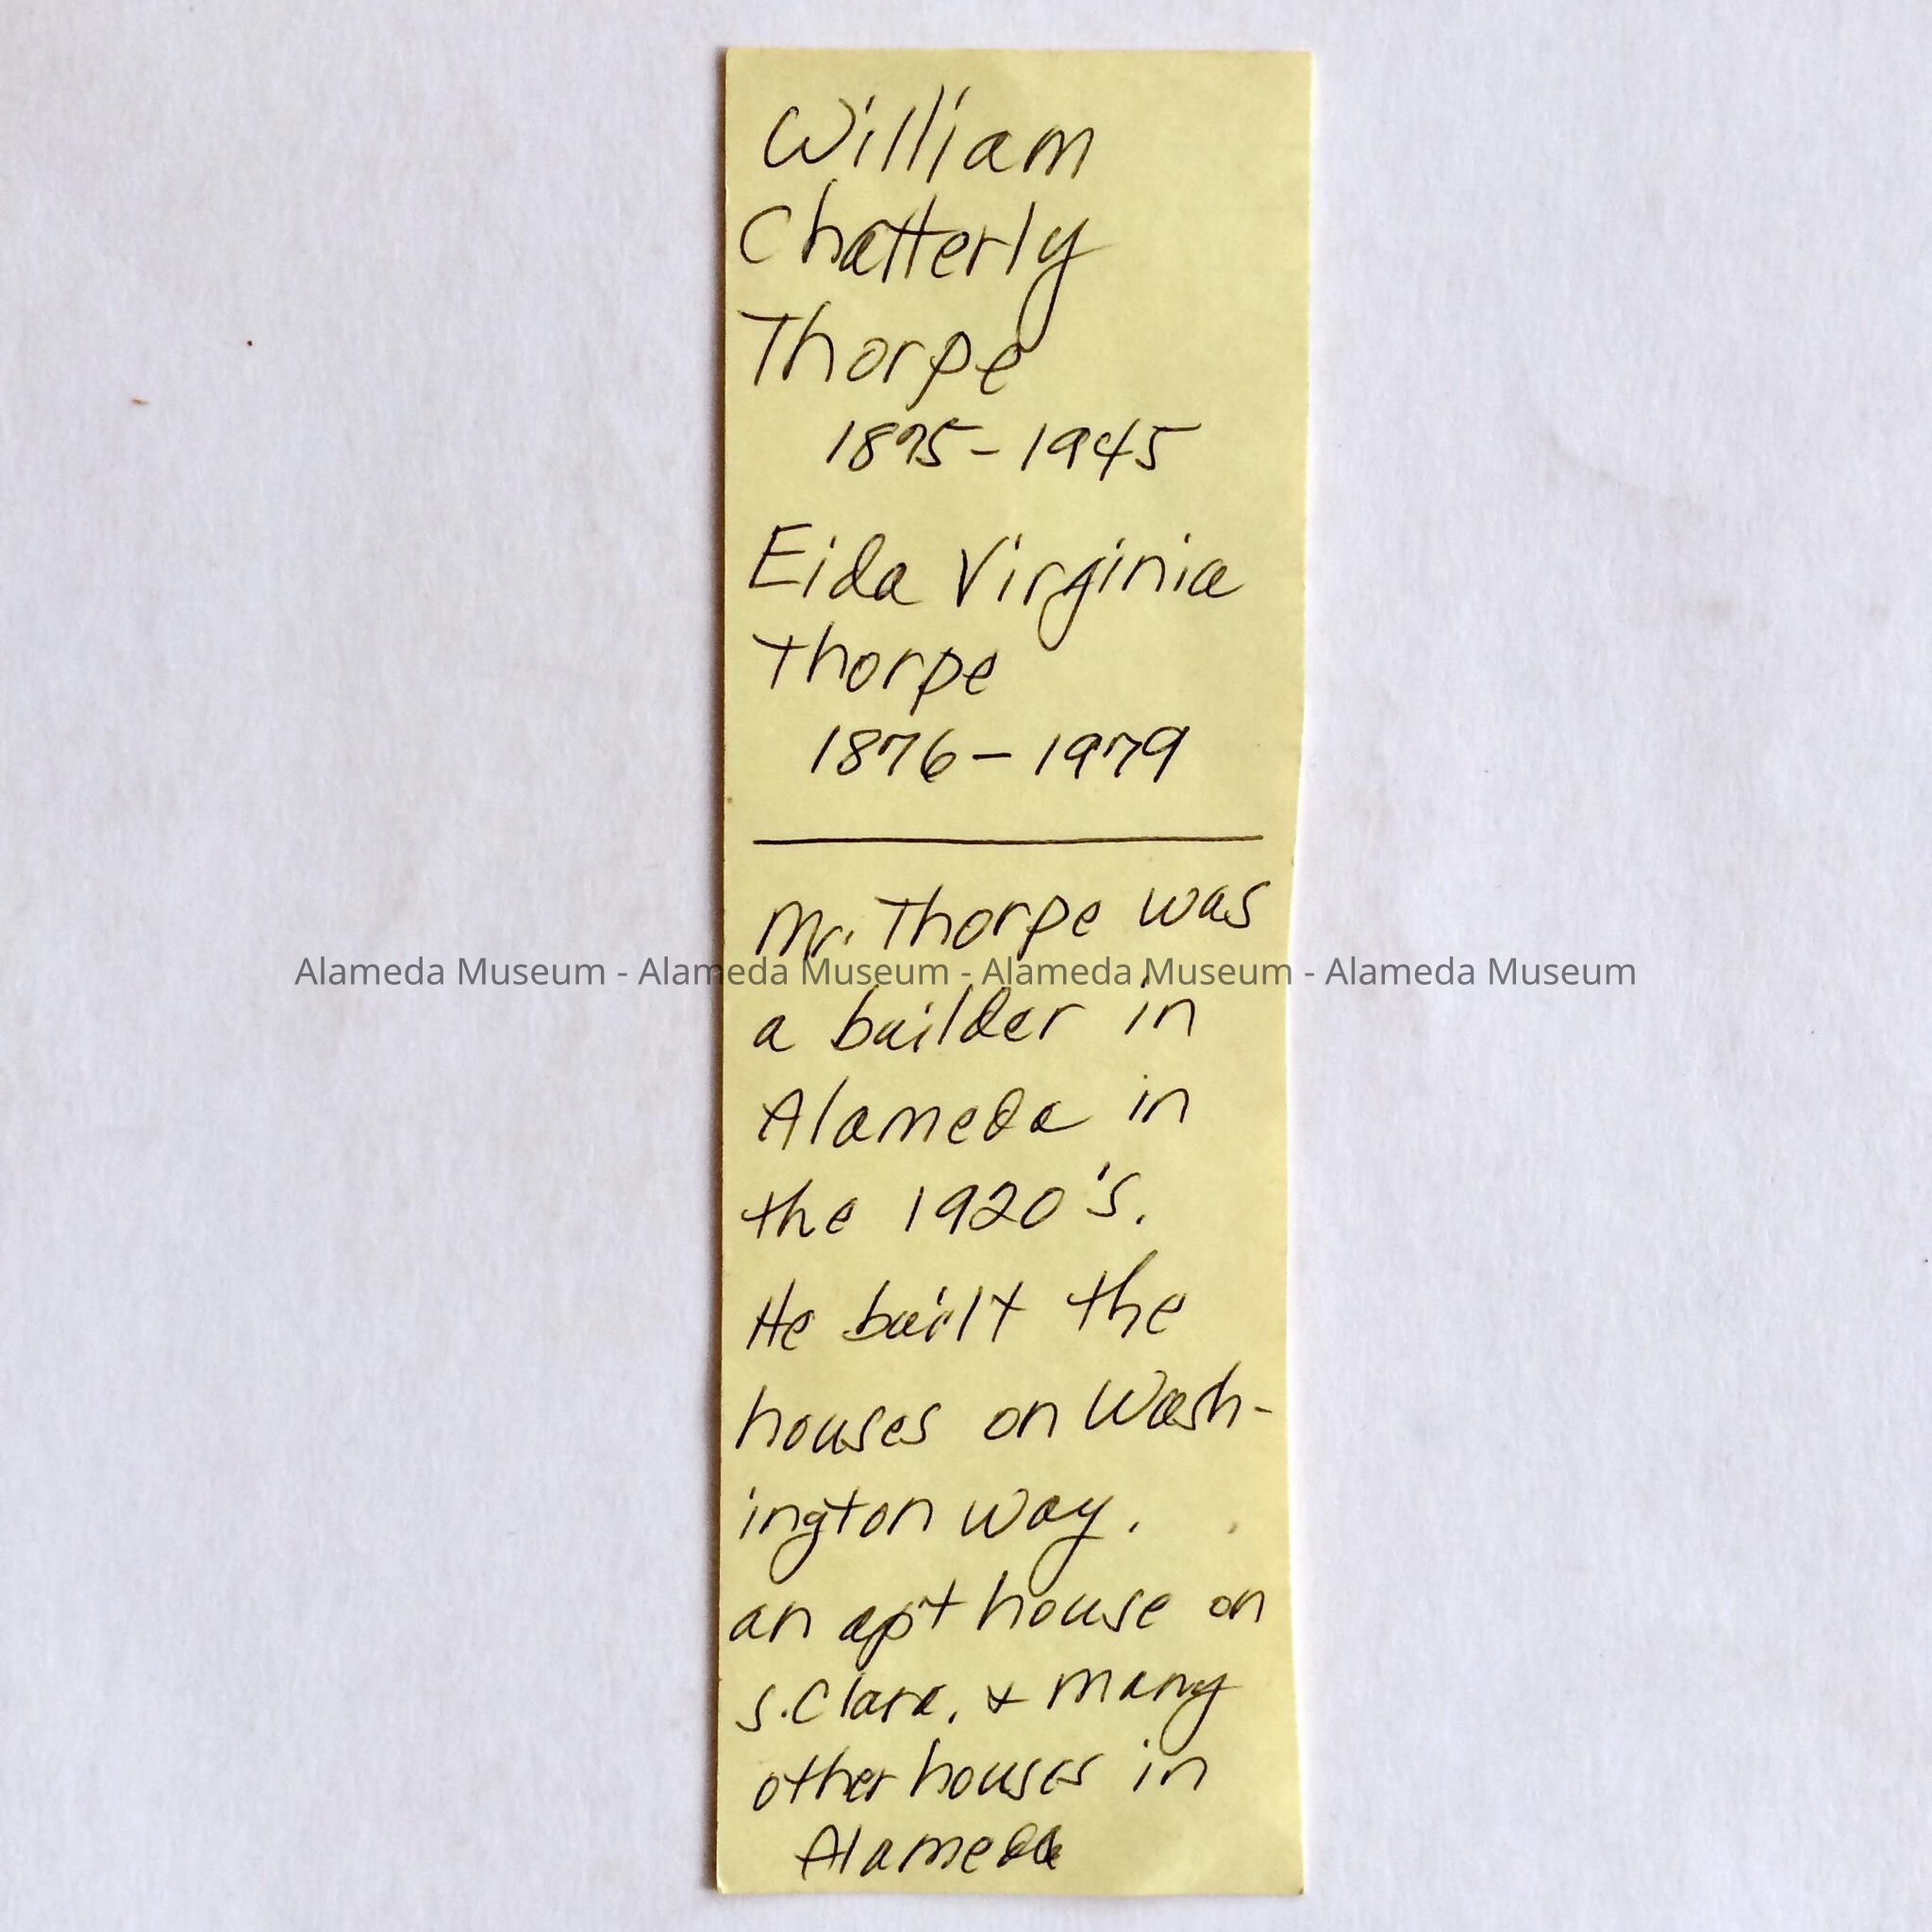 William
Chatterly
Thorpe
1875-1945
Eida Virginia
Thorpe
1876-1979
Mr. Thorpe was
Alameda Museum - Alameda Museum - Alameda Museum - Alameda Museum
a builder in
Alameda in
the 1920's.
He built the
houses on Wash-
ington Way.
an apt house on
S. Clara, & many
other houses in
Alameda